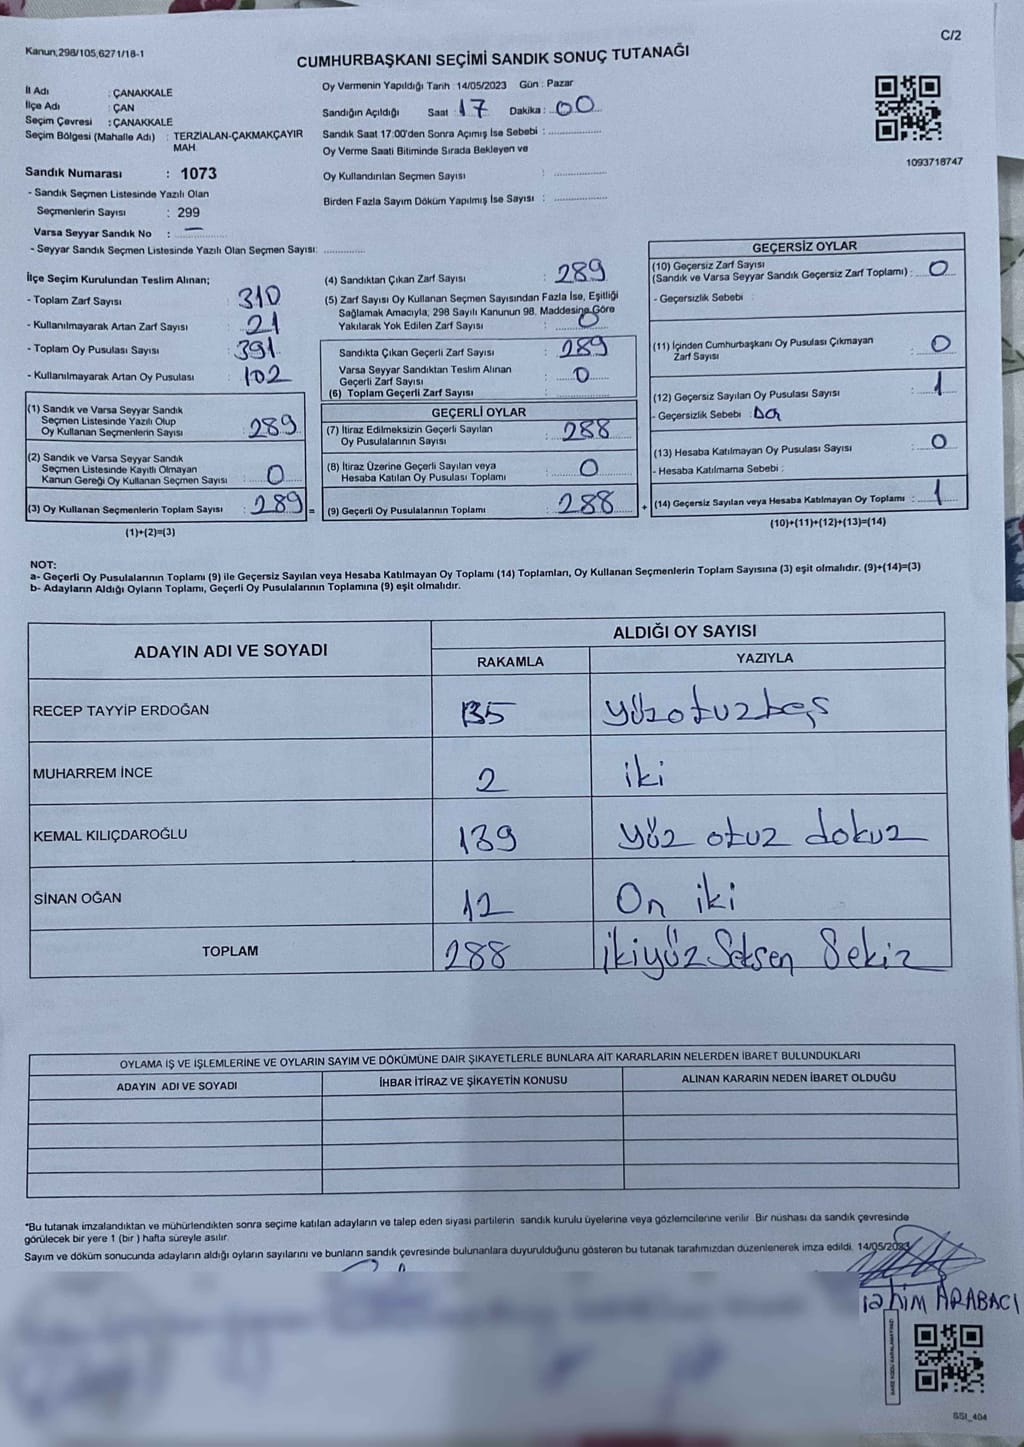 Kanun,298/105,6271/18-1
C/2
CUMHURBAŞKANI SEÇİMİ SANDIK SONUÇ TUTANAĞI
İl Adı : ÇANAKKALE
İlçe Adı : ÇAN
Seçim Çevresi : ÇANAKKALE
Seçim Bölgesi (Mahalle Adı) : TERZİALAN-ÇAKMAKÇAYIR MAH.
Sandık Numarası : 1073
- Sandık Seçmen Listesinde Yazılı Olan
Seçmenlerin Sayısı : 299
Varsa Seyyar Sandık No : —
- Seyyar Sandık Seçmen Listesinde Yazılı Olan Seçmen Sayısı:
Oy Vermenin Yapıldığı Tarih : 14/05/2023 Gün : Pazar
Sandığın Açıldığı Saat : 17 Dakika : 00
Sandık Saat 17:00'den Sonra Açımış İse Sebebi :
Oy Verme Saati Bitiminde Sırada Bekleyen ve
Oy Kullandırılan Seçmen Sayısı :
Birden Fazla Sayım Döküm Yapılmış İse Sayısı :
1093718747
İlçe Seçim Kurulundan Teslim Alınan;
- Toplam Zarf Sayısı : 310
- Kullanılmayarak Artan Zarf Sayısı : 21
- Toplam Oy Pusulası Sayısı : 391
- Kullanılmayarak Artan Oy Pusulası : 102
(1) Sandık ve Varsa Seyyar Sandık
Seçmen Listesinde Yazılı Olup
Oy Kullanan Seçmenlerin Sayısı : 289
(2) Sandık ve Varsa Seyyar Sandık
Seçmen Listesinde Kayıtlı Olmayan
Kanun Gereği Oy Kullanan Seçmen Sayısı : 0
(3) Oy Kullanan Seçmenlerin Toplam Sayısı : 289 =
(1)+(2)=(3)
(4) Sandıktan Çıkan Zarf Sayısı : 289
(5) Zarf Sayısı Oy Kullanan Seçmen Sayısından Fazla İse, Eşitliği
Sağlamak Amacıyla, 298 Sayılı Kanunun 98. Maddesine Göre
Yakılarak Yok Edilen Zarf Sayısı : 0
Sandıkta Çıkan Geçerli Zarf Sayısı : 289
Varsa Seyyar Sandıktan Teslim Alınan
Geçerli Zarf Sayısı : 0
(6) Toplam Geçerli Zarf Sayısı :
GEÇERLİ OYLAR
(7) İtiraz Edilmeksizin Geçerli Sayılan
Oy Pusulalarının Sayısı : 288
(8) İtiraz Üzerine Geçerli Sayılan veya
Hesaba Katılan Oy Pusulası Toplamı : 0
(9) Geçerli Oy Pusulalarının Toplamı : 288 +
GEÇERSİZ OYLAR
(10) Geçersiz Zarf Sayısı
(Sandık ve Varsa Seyyar Sandık Geçersiz Zarf Toplamı) : 0
- Geçersizlik Sebebi :
(11) İçinden Cumhurbaşkanı Oy Pusulası Çıkmayan
Zarf Sayısı : 0
(12) Geçersiz Sayılan Oy Pusulası Sayısı : 1
- Geçersizlik Sebebi :
(13) Hesaba Katılmayan Oy Pusulası Sayısı : 0
- Hesaba Katılmama Sebebi :
(14) Geçersiz Sayılan veya Hesaba Katılmayan Oy Toplamı : 1
(10)+(11)+(12)+(13)=(14)
NOT:
a- Geçerli Oy Pusulalarının Toplamı (9) ile Geçersiz Sayılan veya Hesaba Katılmayan Oy Toplamı (14) Toplamları, Oy Kullanan Seçmenlerin Toplam Sayısına (3) eşit olmalıdır. (9)+(14)=(3)
b- Adayların Aldığı Oyların Toplamı, Geçerli Oy Pusulalarının Toplamına (9) eşit olmalıdır.
ADAYIN ADI VE SOYADI ALDIĞI OY SAYISI
RAKAMLA YAZIYLA
RECEP TAYYİP ERDOĞAN 135 yüzotuzbeş
MUHARREM İNCE 2 iki
KEMAL KILIÇDAROĞLU 139 yüz otuz dokuz
SİNAN OĞAN 12 On iki
TOPLAM 288 ikiyüz Seksen Sekiz
OYLAMA İŞ VE İŞLEMLERİNE VE OYLARIN SAYIM VE DÖKÜMÜNE DAİR ŞİKAYETLERLE BUNLARA AİT KARARLARIN NELERDEN İBARET BULUNDUKLARI
ADAYIN ADI VE SOYADI İHBAR İTİRAZ VE ŞİKAYETİN KONUSU ALINAN KARARIN NEDEN İBARET OLDUĞU
*Bu tutanak imzalandıktan ve mühürlendikten sonra seçime katılan adayların ve talep eden siyasi partilerin sandık kurulu üyelerine veya gözlemcilerine verilir. Bir nüshası da sandık çevresinde
görülecek bir yere 1 (bir) hafta süreyle asılır.
Sayım ve döküm sonucunda adayların aldığı oyların sayılarını ve bunların sandık çevresinde bulunanlara duyurulduğunu gösteren bu tutanak tarafımızdan düzenlenerek imza edildi. 14/05/2023
ARABACI
SSI_404